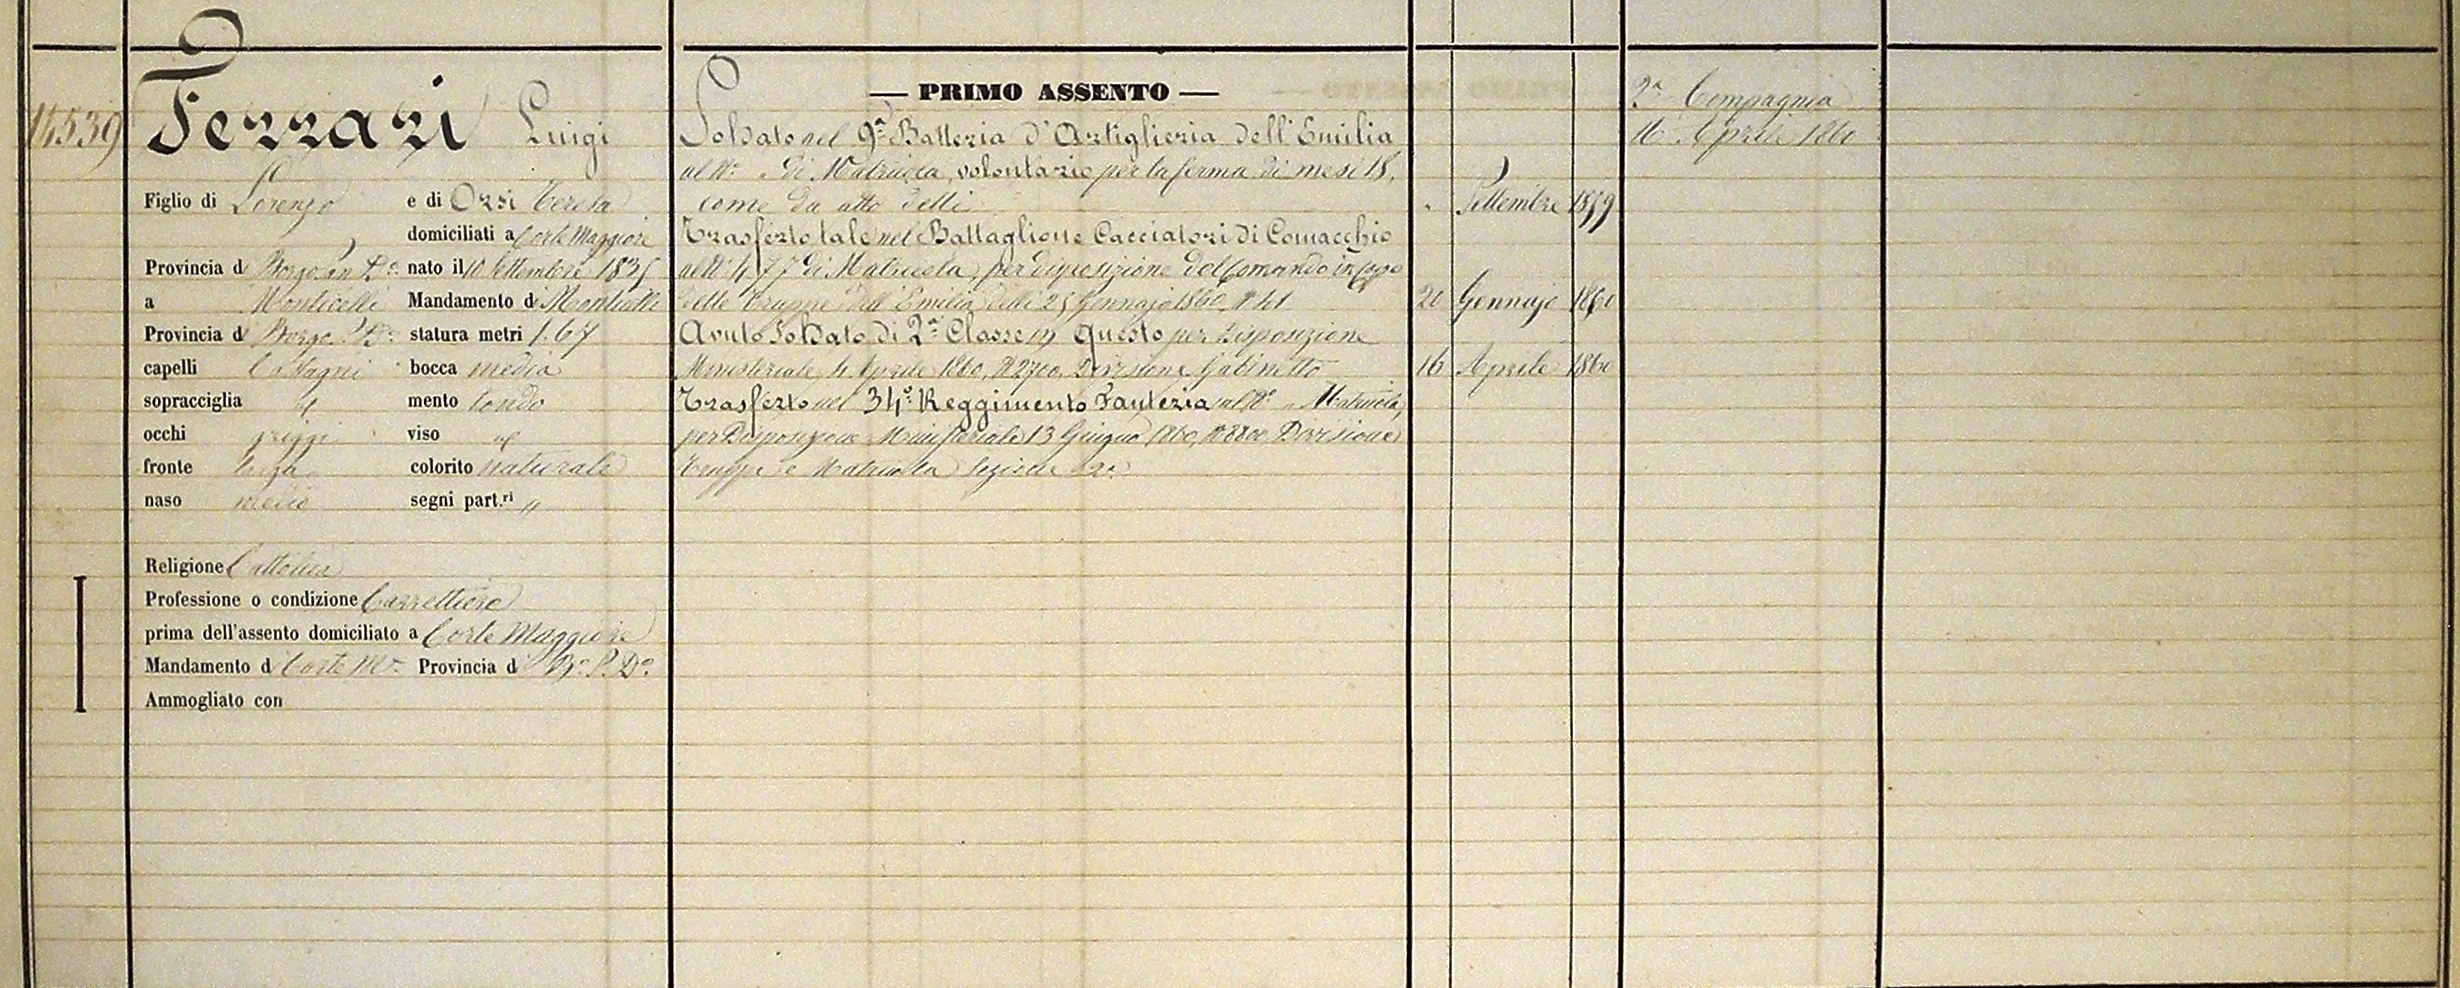 14539
Ferrari Luigi
Figlio di Lorenzo e di Orsi Teresa
domiciliati a Corte Maggiore
Provincia di Borgo San D.° nato il 10 Settembre 1835
a Monticelli Mandamento di Monticelli
Provincia di Borgo S. D.° statura metri 1.67
capelli Castagni bocca media
sopracciglia id mento tondo
occhi griggi viso id
fronte colorito naturale
naso medio segni part.ri "
Religione Cattolica
Professione o condizione Carrettiere
prima dell'assento domiciliato a Corte Maggiore
Mandamento di Corte M.re Provincia di B.go S. D.°
Ammogliato con
— PRIMO ASSENTO —
Soldato nel 9.a Batteria d'Artiglieria dell'Emilia
al N.° " di Matricola, volontario per la ferma di mesi 18,
come da atto delli " Settembre 1859
Trasferto tale nel Battaglione Cacciatori di Comacchio
al N.° 477 di Matricola, per disposizione del Comando in Capo
delle Truppe dell'Emilia delli 25 Gennajo 1860, N. 20 Gennajo 1860
Avuto Soldato di 2.a Classe in Questo per Disposizione
Ministeriale 4 Aprile 1860, N. 2700, Divisione Gabinetto 16 Aprile 1860
Trasferto nel 34.° Reggimento Fanteria al N.° " Matricola,
per Disposizione Ministeriale 13 Giugno 1860, N. 8800 Divisione
Truppa e Matricola Sezione 2.a
2.a Compagnia
16 Aprile 1860